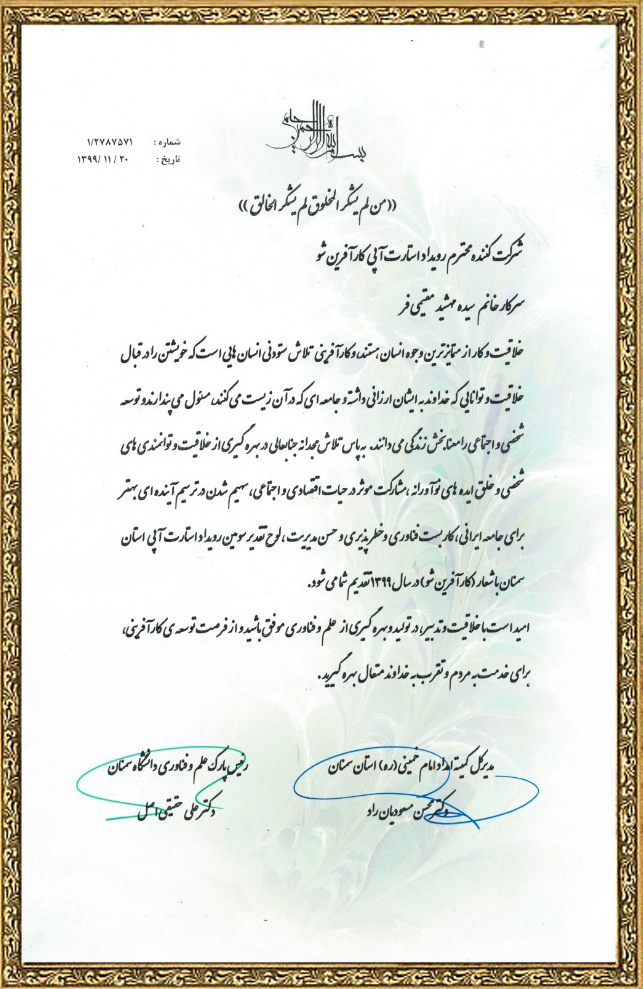 بسم الله الرحمن الرحیم
شماره : ۱/۲۷۸۷۵۷۱
تاریخ : ۱۳۹۹/۱۱/۲۰
((من لم یشکر المخلوق لم یشکر الخالق))
شرکت کننده محترم رویداد استارت آپی کارآفرین شو
سرکار خانم سیده مهشید مقیمی فر
خلاقیت و کار از متمایزترین وجوه انسان هستند، و کارآفرینی تلاش ستودنی انسان هایی است که خویشتن را در قبال
خلاقیت و توانایی که خداوند به ایشان ارزانی داشته و جامعه ای که در آن زیست می کنند، مسئول می پندارند و توسعه
شخصی و اجتماعی را معنابخش زندگی می دانند. به پاس تلاش مجدانه جنابعالی در بهره گیری از خلاقیت و توانمندی های
شخصی و خلق ایده های نوآورانه ،مشارکت موثر در حیات اقتصادی و اجتماعی، سهیم شدن در ترسیم آینده ای بهتر
برای جامعه ایرانی، کاربست فناوری و خطرپذیری و حسن مدیریت، لوح تقدیر سومین رویداد استارت آپی استان
سمنان باشعار (کارآفرین شو) در سال ۱۳۹۹ تقدیم شما می شود.
امید است با خلاقیت و تدبیر، در تولید و بهره گیری از علم و فناوری موفق باشید و از فرصت توسعه ی کارآفرینی،
برای خدمت به مردم و تقرب به خداوند متعال بهره گیرید.
مدیرکل کمیته امداد امام خمینی (ره) استان سمنان
دکتر محسن مسعودیان راد
رئیس پارک علم و فناوری دانشگاه سمنان
دکتر علی حقیقی اصل